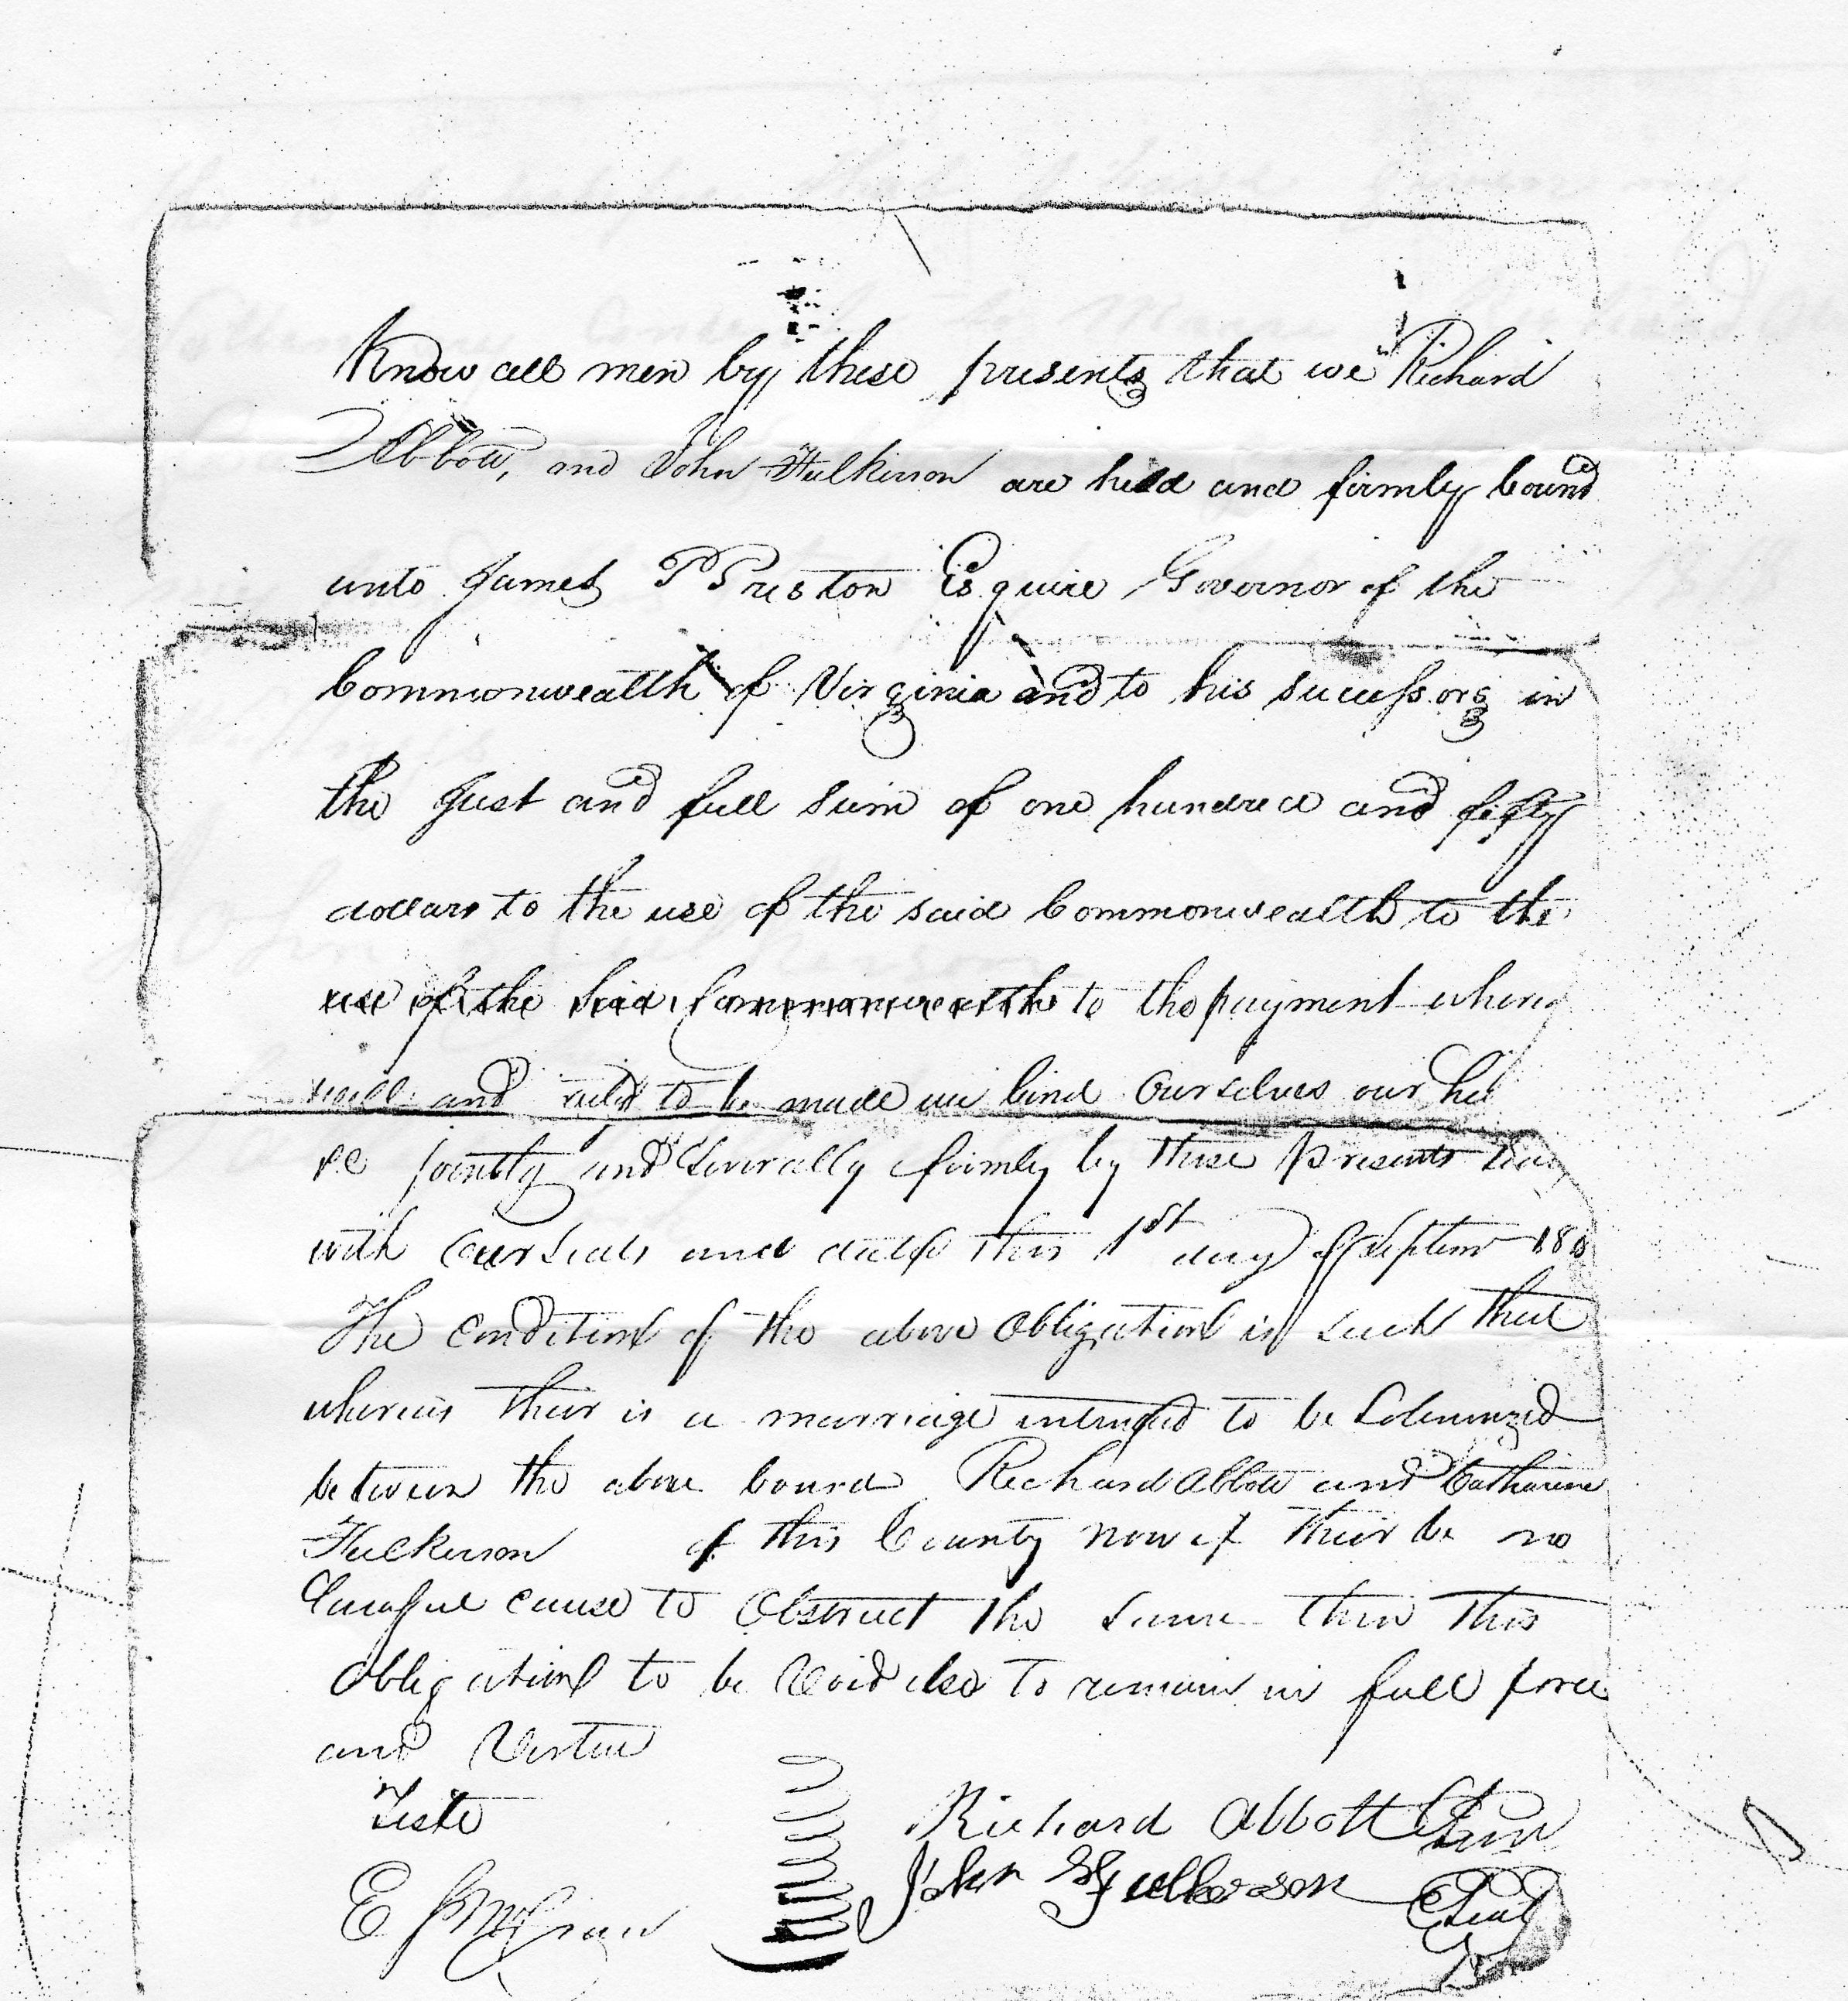 Know all men by these presents that we Richard
Abbott, and John Fulkerson are held and firmly bound
unto James P Preston Esquire Governor of the
Commonwealth of Virginia and to his successors in
the just and full sum of one hundred and fifty
dollars to the use of the said Commonwealth to the
use of the said Commonwealth to the payment where
well and to be made we bind Ourselves our hei
rs jointly and Severally firmly by these presents
with our Seals and date this 1st day of Septem 181
The Condition of the above Obligation is such that
whereas their is a marriage intended to be Solemnized
between the above bound Richard Abbott and Catharine
Fulkerson of this County now if their be no
Lawful cause to Obstruct the same then this
Obligation to be Void else to remain in full force
and Virtue
Teste
Richard Abbott Seal
John Fulkerson Seal
E